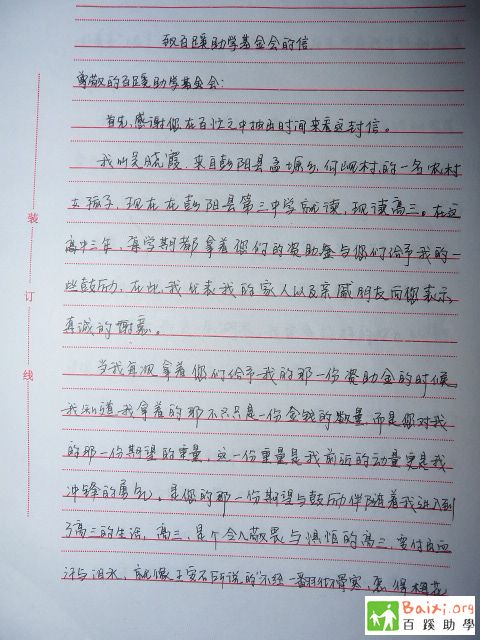 致百蹊助学基金会的信
尊敬的百蹊助学基金会:
首先,感谢您在百忙之中抽出时间来看这封信。
我叫吴晓霞,来自彭阳县孟塬乡何岘村的一名农村
女孩子,现在在彭阳县第三中学就读,现读高三。在这
高中三年,每学期都拿着您们的资助金与你们给予我的一
些鼓励,在此,我代表我的家人以及亲戚朋友向您表示
真诚的谢意。
当我每次拿着您们给予我的那一份资助金的时候,
我知道我拿着的那不只只是一份金钱的数量,而是您对我
的那一份期望的重量,这一份重量是我前进的动量更是我
冲锋的勇气。是您的那一份期望与鼓励伴随着我进入到
了高三的生活,高三,是个令人敬畏与惧怕的高三,要付出血
汗与泪水,就像王安石所说的"不经一翻彻骨寒,怎得梅花
装
订
线
Baixi.org
百蹊助學